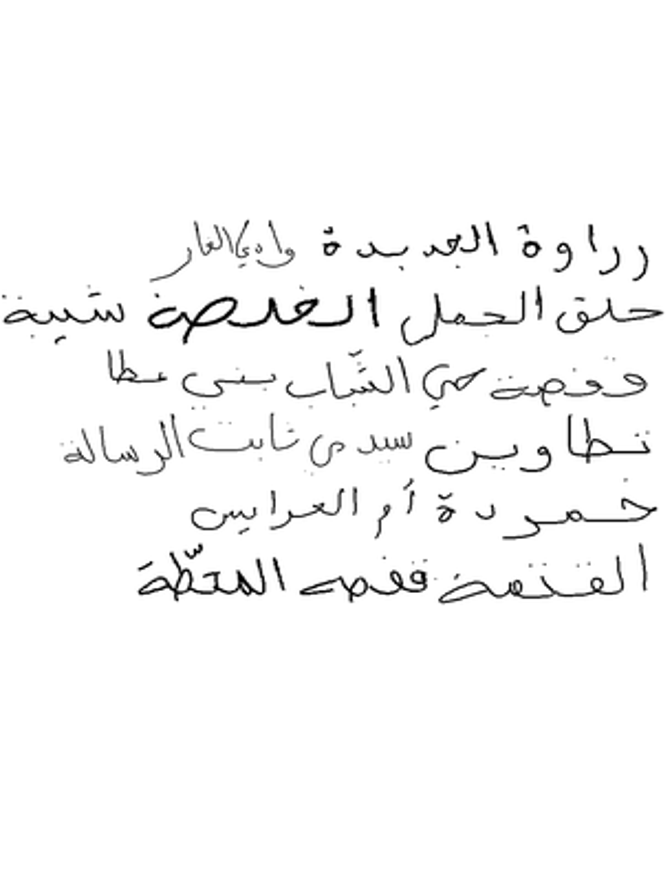 رراوة الجديدة وادي الغار
حلق الجمل الخلصة شيبة
قفصة حي الشباب بني عطا
تطاوين سيدي ثابت الرسالة
خمردة أم العرايس
القنتمة قفصه المحطّة